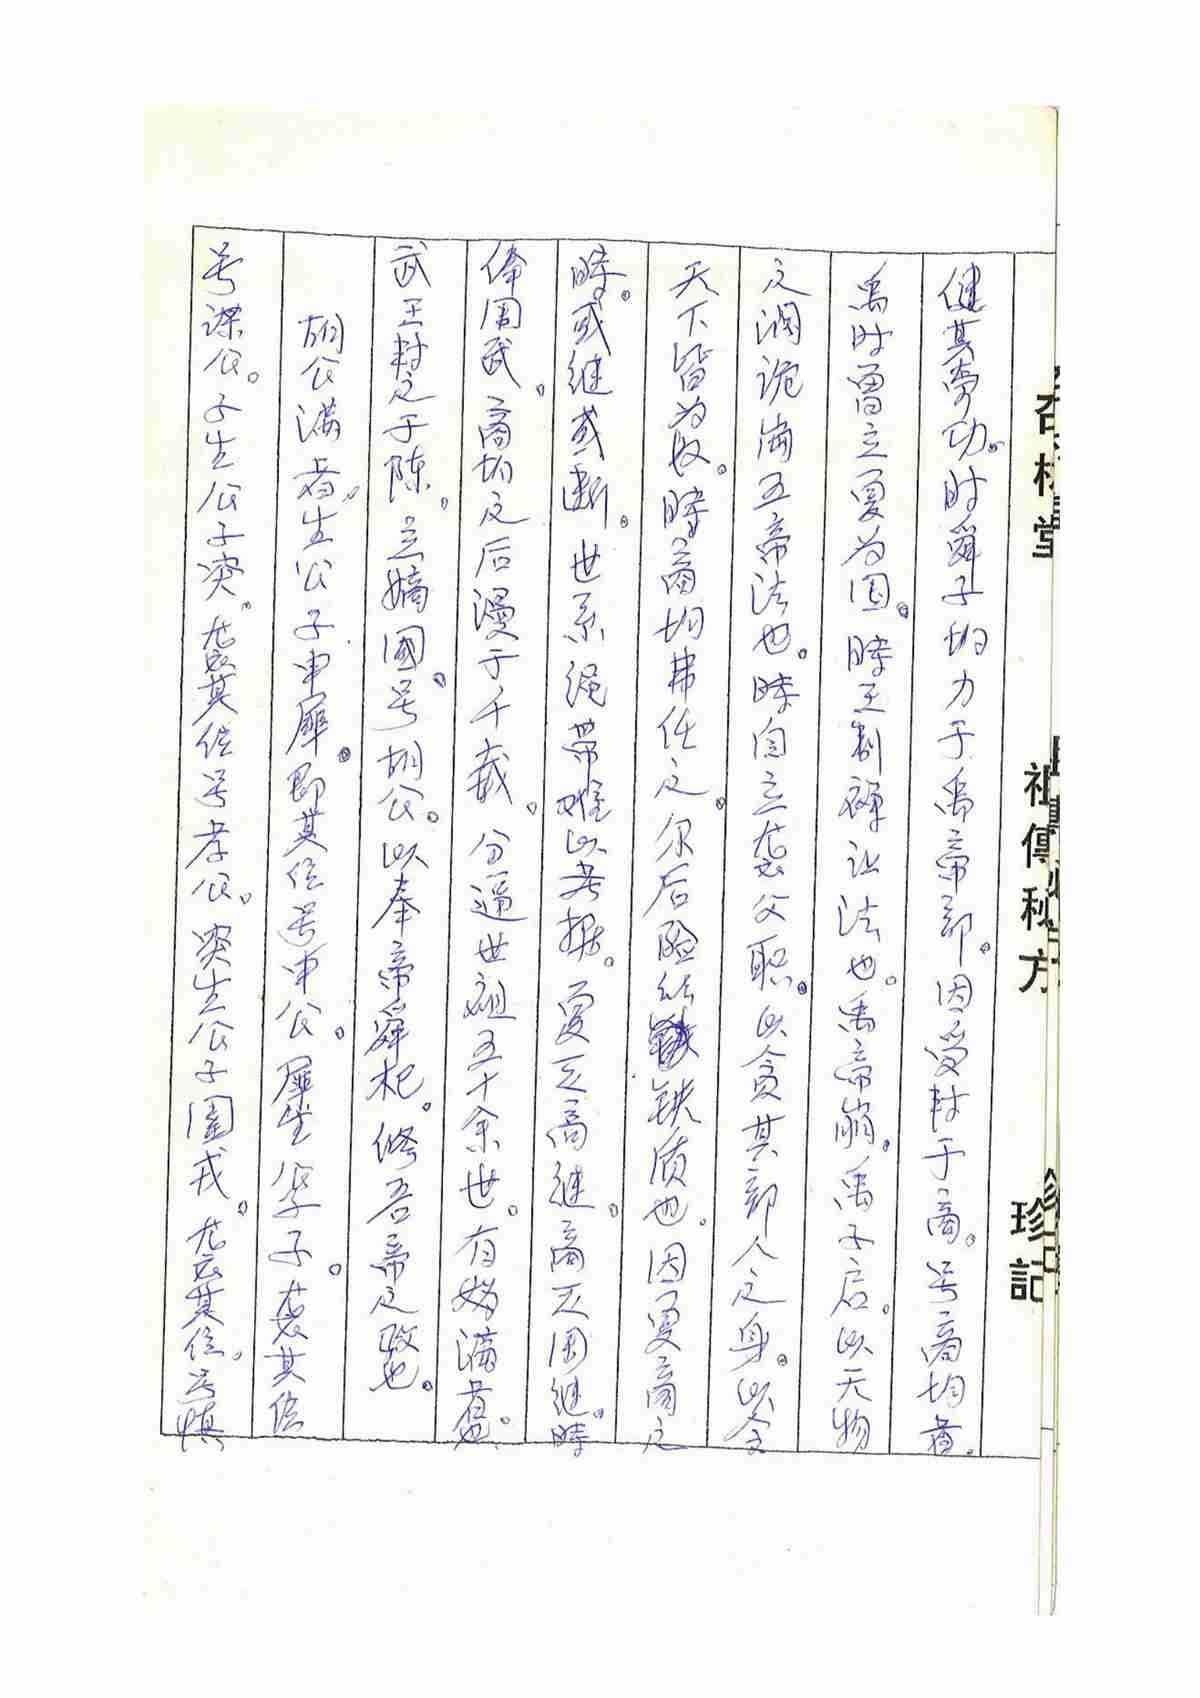 杏林堂 祖傳秘方 珍記
健其奇功。时舜子均力于禹帝部。因受封于商。号商均者。
禹时曾立夏为国。時王制禪让法也。禹帝崩。禹子启。以天物
之润诡淘五帝法也。時自立袭父职。以贪其部人之身。以令
天下皆为奴。時商均弗任之。尔后 铁质也。因夏商之
時。或继或断。世系绳带难以考据。夏灭商继。商灭周继。時
俸周武。商均之后漫于千載。分遥世祖五十余世。有妫满者也。
武王封之于陈。立嫡國号胡公。以奉帝舜杞。修吾帝之政也。
胡公满者。生公子申犀。即其位号申公。犀生 子。袭其位
号 公。子生公子突。袭其位号孝公。突生公子圉戎。袭其位。号慎